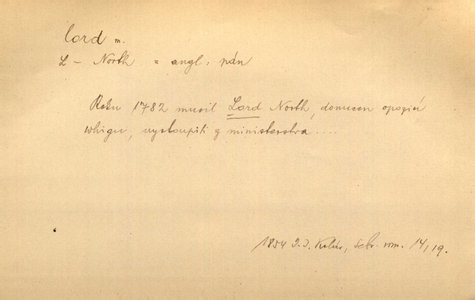 lord m.
L – North = angl. pán
Roku 1782 musil Lord North, donucen oposicí
whigů, vystoupiti z ministerstva ....
1854 J. J. Kolár, sebr. rom. 14, 19.